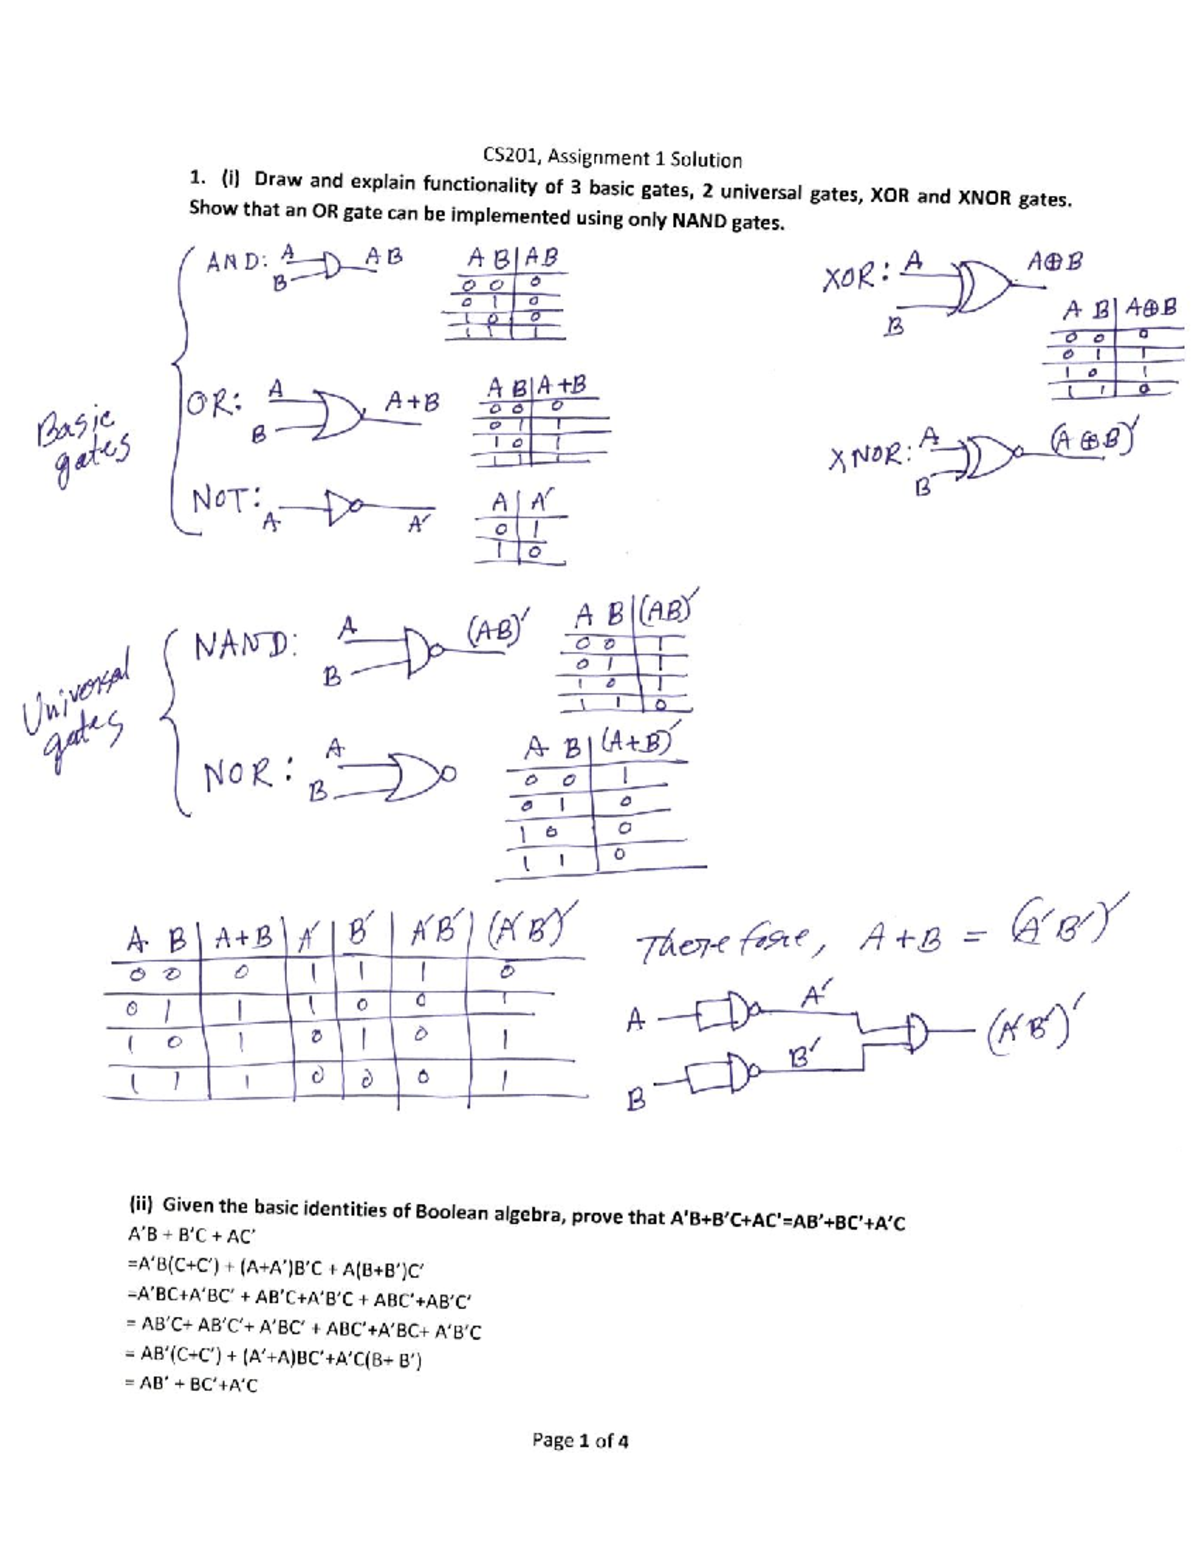 CS201, Assignment 1 Solution
1. (i) Draw and explain functionality of 3 basic gates, 2 universal gates, XOR and XNOR gates.
Show that an OR gate can be implemented using only NAND gates.
Basic
gates
AND: A B AB
A B | AB
0 0 0
0 1 0
1 0 0
1 1 1
OR: A B A+B
A B | A+B
0 0 0
0 1 1
1 0 1
1 1 1
NOT: A A′
A | A′
0 1
1 0
XOR: A B A⊕B
A B | A⊕B
0 0 0
0 1 1
1 0 1
1 1 0
XNOR: A B (A⊕B)′
Universal
gates
NAND: A B (AB)′
A B | (AB)′
0 0 1
0 1 1
1 0 1
1 1 0
NOR: A B
A B | (A+B)′
0 0 1
0 1 0
1 0 0
1 1 0
A B | A+B | A′ | B′ | A′B′ | (A′B′)′
0 0 0 1 1 1 0
0 1 1 1 0 0 1
1 0 1 0 1 0 1
1 1 1 0 0 0 1
Therefore, A+B = (A′B′)′
A A′
B B′
(A′B′)′
(ii) Given the basic identities of Boolean algebra, prove that A′B+B′C+AC′=AB′+BC′+A′C
A′B + B′C + AC′
=A′B(C+C′) + (A+A′)B′C + A(B+B′)C′
=A′BC+A′BC′ + AB′C+A′B′C + ABC′+AB′C′
= AB′C+ AB′C′+ A′BC′ + ABC′+A′BC+ A′B′C
= AB′(C+C′) + (A′+A)BC′+A′C(B+ B′)
= AB′ + BC′+A′C
Page 1 of 4